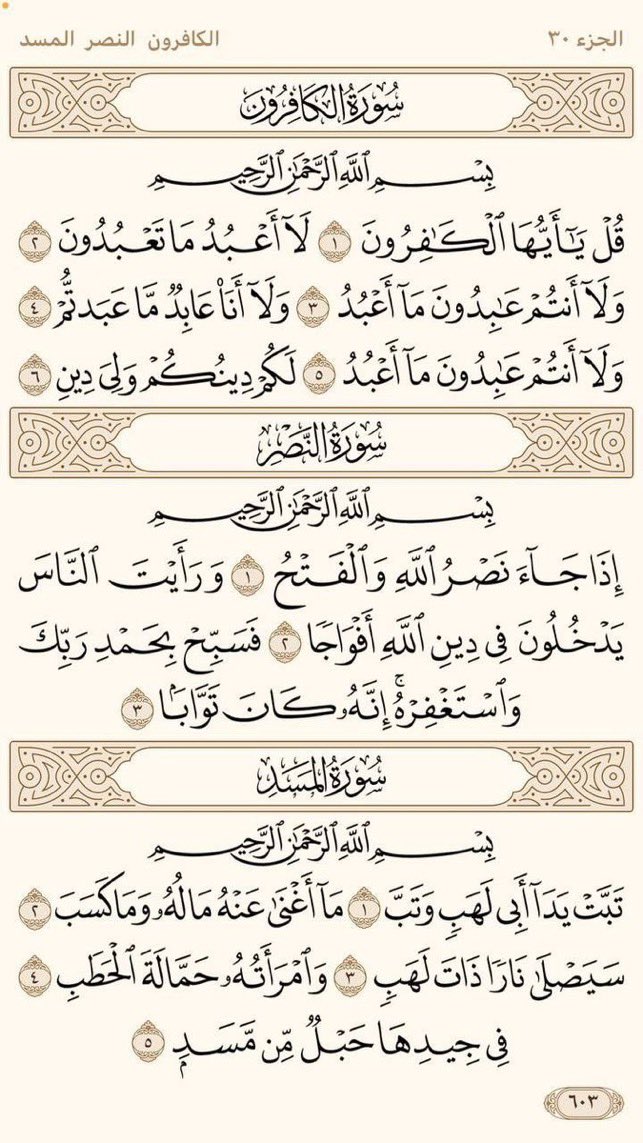 الجزء ٣٠
الكافرون النصر المسد
سُورَةُ الكَافِرُونَ
بِسْمِ ٱللَّهِ ٱلرَّحْمَٰنِ ٱلرَّحِيمِ
قُلْ يَٰٓأَيُّهَا ٱلْكَٰفِرُونَ ١ لَآ أَعْبُدُ مَا تَعْبُدُونَ ٢
وَلَآ أَنتُمْ عَٰبِدُونَ مَآ أَعْبُدُ ٣ وَلَآ أَنَا۠ عَابِدٌ مَّا عَبَدتُّمْ ٤
وَلَآ أَنتُمْ عَٰبِدُونَ مَآ أَعْبُدُ ٥ لَكُمْ دِينُكُمْ وَلِىَ دِينِ ٦
سُورَةُ النَّصْرِ
بِسْمِ ٱللَّهِ ٱلرَّحْمَٰنِ ٱلرَّحِيمِ
إِذَا جَآءَ نَصْرُ ٱللَّهِ وَٱلْفَتْحُ ١ وَرَأَيْتَ ٱلنَّاسَ
يَدْخُلُونَ فِى دِينِ ٱللَّهِ أَفْوَاجًا ٢ فَسَبِّحْ بِحَمْدِ رَبِّكَ
وَٱسْتَغْفِرْهُۚ إِنَّهُۥ كَانَ تَوَّابَۢا ٣
سُورَةُ المَسَدِ
بِسْمِ ٱللَّهِ ٱلرَّحْمَٰنِ ٱلرَّحِيمِ
تَبَّتْ يَدَآ أَبِى لَهَبٍ وَتَبَّ ١ مَآ أَغْنَىٰ عَنْهُ مَالُهُۥ وَمَا كَسَبَ ٢
سَيَصْلَىٰ نَارًا ذَاتَ لَهَبٍ ٣ وَٱمْرَأَتُهُۥ حَمَّالَةَ ٱلْحَطَبِ ٤
فِى جِيدِهَا حَبْلٌ مِّن مَّسَدٍۭ ٥
٦٠٣